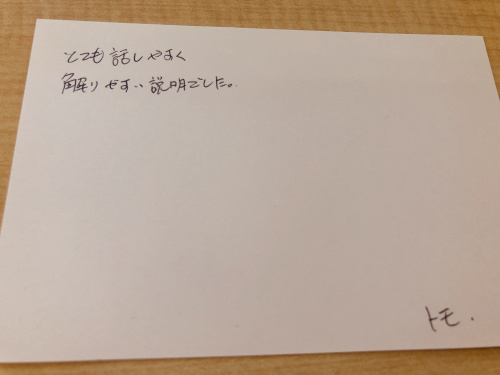 とても話しやすく
解りやすい説明でした。
トモ.